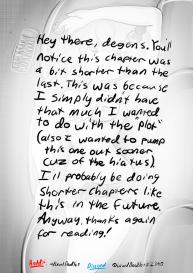 Hey there, degens. You'll
notice this chapter was
a bit shorter than the
last. This was because
I simply didn't have
that much I wanted
to do with the plot
(also I wanted to pump
this one out sooner
cuz of the hiatus)
I'll probably be doing
shorter chapters like
this in the future.
Anyway, thanks again
for reading!